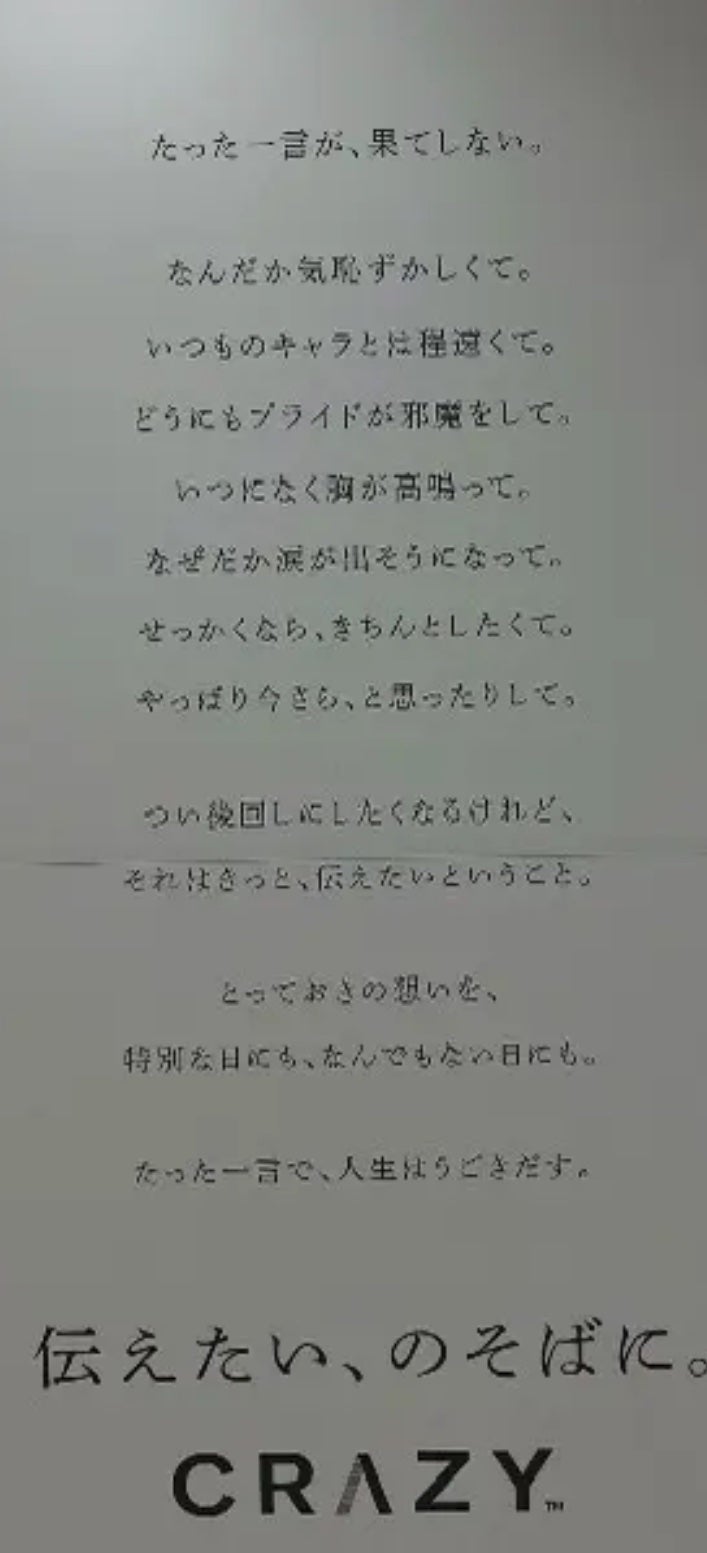 たった一言が、果てしない。
なんだか気恥ずかしくて。
いつものキャラとは程遠くて。
どうにもプライドが邪魔をして。
いつになく胸が高鳴って。
なぜだか涙が出そうになって。
せっかくなら、きちんとしたくて。
やっぱり今さら、と思ったりして。
つい後回しにしたくなるけれど、
それはきっと、伝えたいということ。
とっておきの想いを、
特別な日にも、なんでもない日にも。
たった一言で、人生はうごきだす。
伝えたい、のそばに。
CRAZY™